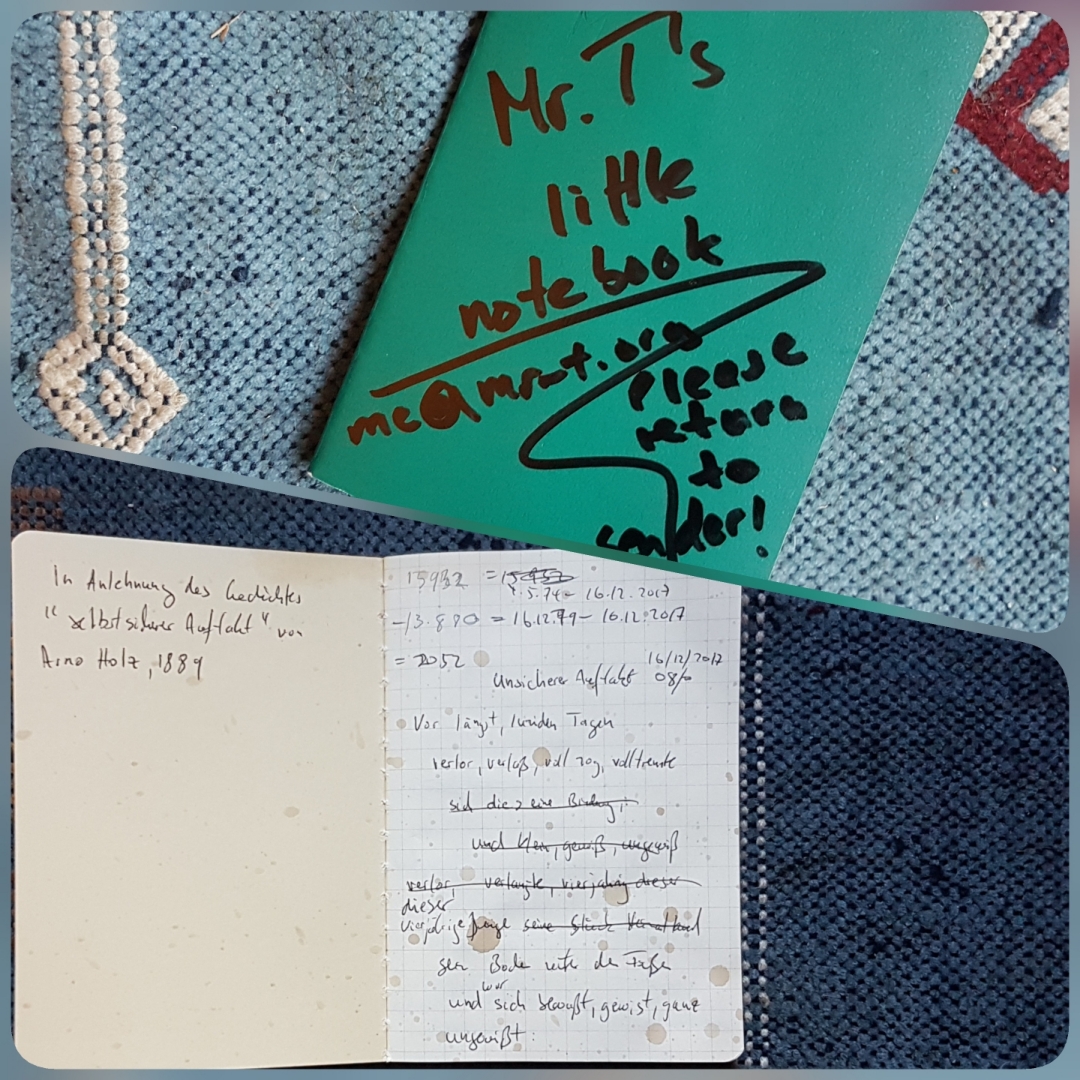 Mr. T's
little
notebook
me@mrwt.org
Please
return
to
sender!
In Anlehnung des Gedichtes
"selbstsicherer Auftakt" von
Arno Holz, 1889
15932 =
- 16.12.2017
-13.880 = 16.12.79 - 16.12.2017
= 2052
16/12/2017
Unsicherer Auftakt
Vor längst,
verlor, vergaß, voll zog,
sich die eine
und klar, gewiß, ungewiß
verlor, vierjährig dieser
dieser
vierjährige Junge seine
den Boden unter den Füßen
war
und sich bewußt, gewist, ganz
ungewißt.